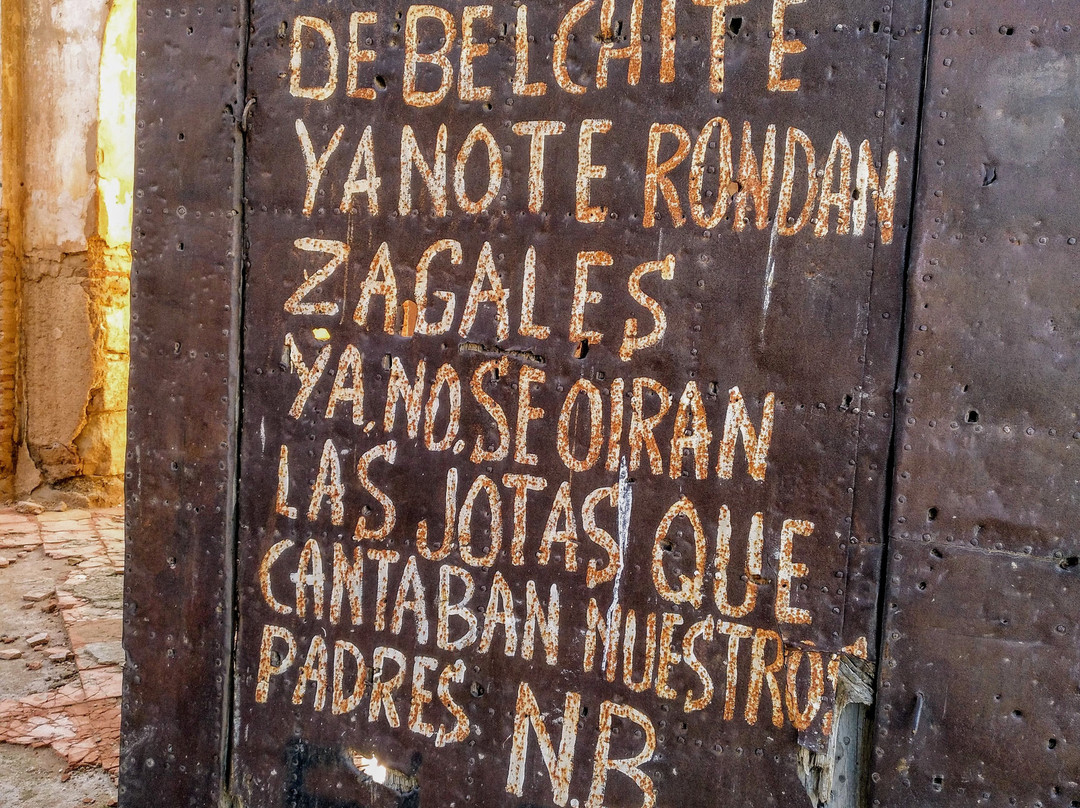 DE BELCHITE
YA NO TE RONDAN
ZAGALES
YA, NO, SE OIRAN
LAS JOTAS QUE
CANTABAN NUESTROS
PADRES N.B.